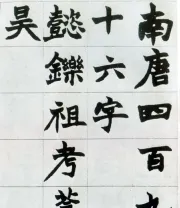 南唐四百
十六字
懿鑠祖考
昊